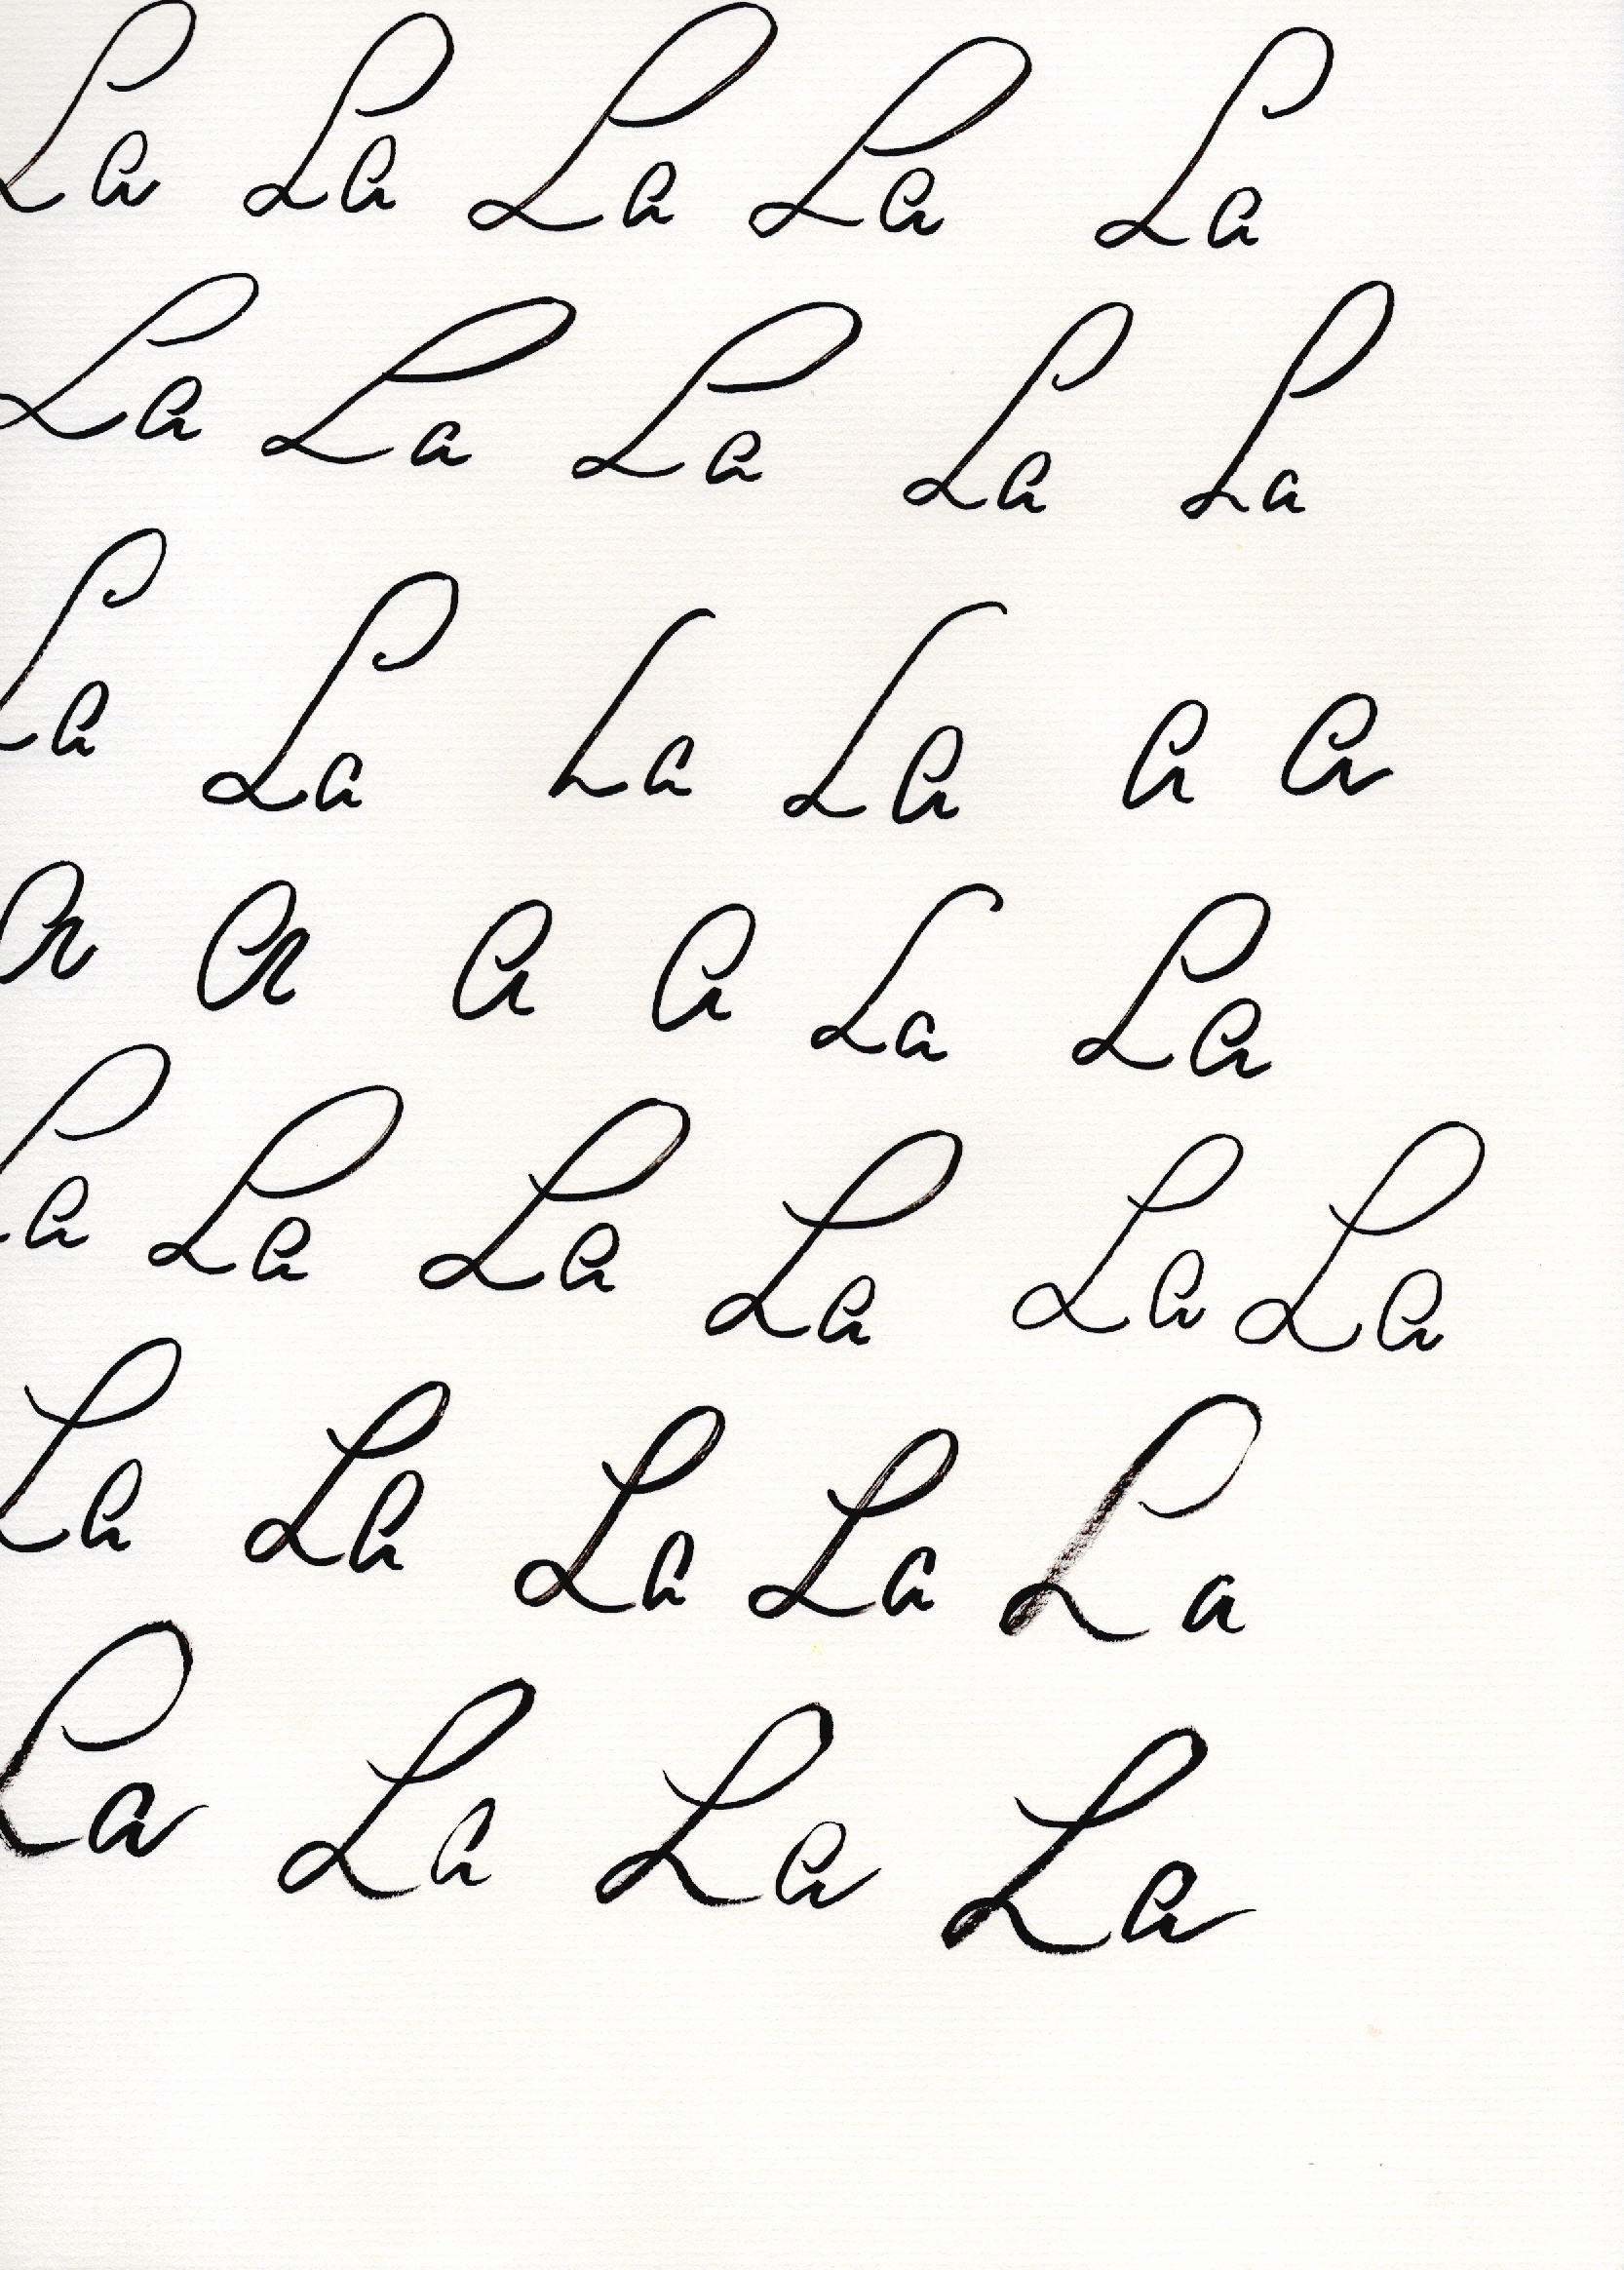 La La La La La
La La La La La
La La La La a a
a a a a La La
La La La La La La
La La La La La
La La La La